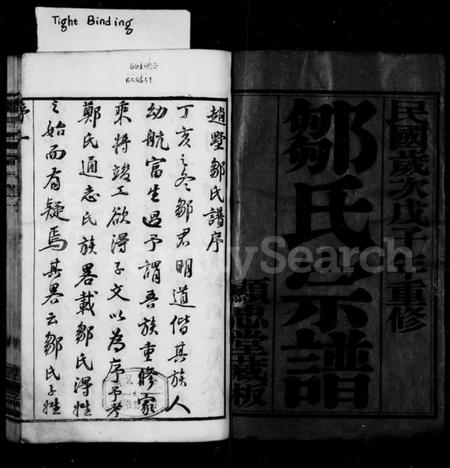 Tight Binding
民國歲次戊子年重修
鄒氏宗譜
顯思堂藏板
趙墅鄒氏譜序
丁亥之冬鄒君明道偕其族人
幼航富生過予謂吾族重修家
乘將竣工欲得予文以為序予考
鄭氏通志氏族畧載鄒氏得姓
之始而有疑焉其畧云鄒氏子姓
序一
FamilySearch